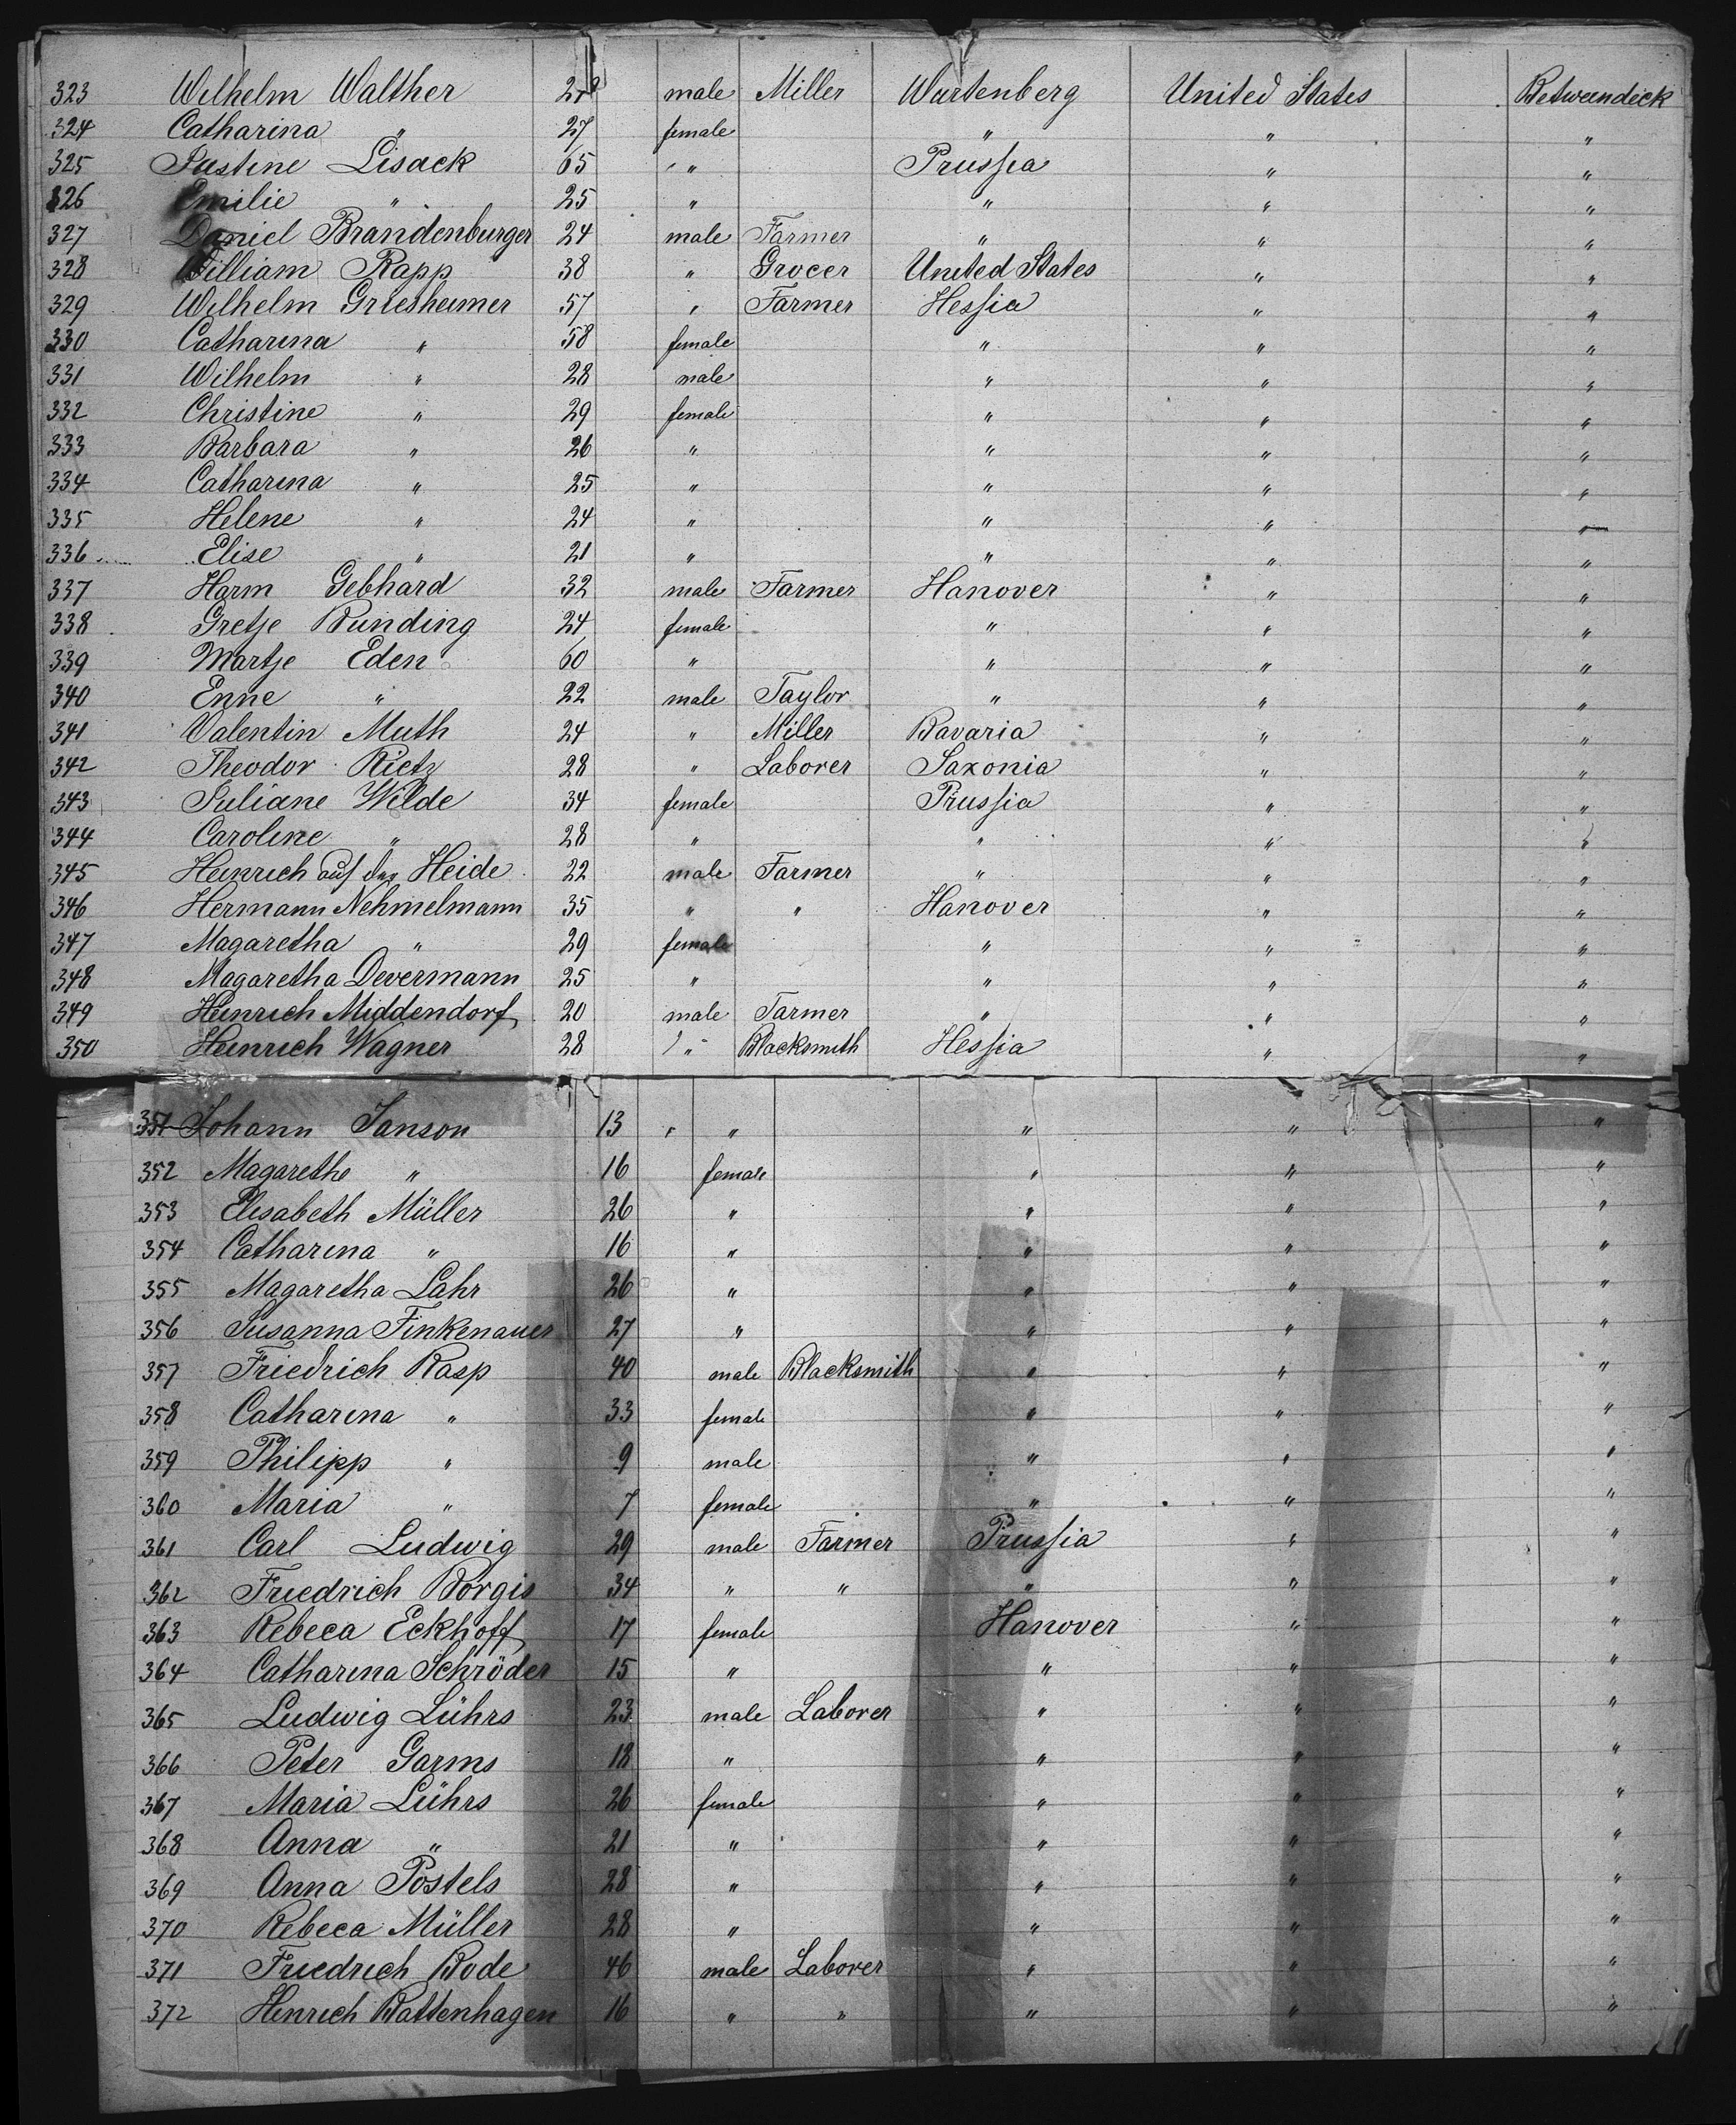 323 Wilhelm Walther male Miller Wurtenberg United States Betweendeck
324 Catharina " 27 female " " "
325 Justine Lisack 65 " Prussia " "
326 Emilie " 25 " " " "
327 Daniel Brandenburger 24 male Farmer " " "
328 William Rapp 38 " Grocer United States " "
329 Wilhelm Griesheimer 57 " Farmer Hessia " "
330 Catharina " 58 female " " "
331 Wilhelm " 28 male " " "
332 Christine " 29 female " " "
333 Barbara " 26 " " " "
334 Catharina " 25 " " " "
335 Helene " 24 " " " "
336 Elise " 21 " " " "
337 Harm Gebhard 32 male Farmer Hanover " "
338 Gretje Bunding 24 female " " "
339 Martje Eden 60 " " " "
340 Enne " 22 male Taylor " " "
341 Valentin Muth 24 " Miller Bavaria " "
342 Theodor Rietz 28 " Laborer Saxonia " "
343 Juliane Wilde 34 female Prussia " "
344 Caroline " 28 " " " "
345 Heinrich auf der Heide 22 male Farmer " " "
346 Hermann Nehmelmann 35 " " Hanover " "
347 Magaretha " 29 female " " "
348 Magaretha Devermann 25 " " " "
349 Heinrich Middendorf 20 male Farmer " " "
350 Heinrich Wagner 28 " Blacksmith Hessia " "
351 Johann Janson 13 " " " "
352 Magarethe " 16 female " " "
353 Elisabeth Müller 26 " " " "
354 Catharina " 16 " " " "
355 Magaretha Lahr 26 " " " "
356 Susanna Finkenauer 27 " " " "
357 Friedrich Rasp 40 male Blacksmith " " "
358 Catharina " 33 female " " "
359 Philipp " 9 male " " "
360 Maria " 7 female " " "
361 Carl Ludwig 29 male Farmer Prussia " "
362 Friedrich Borgis 34 " " " " "
363 Rebeca Eckhoff 17 female Hanover " "
364 Catharina Schröder 15 " " " "
365 Ludwig Lührs 23 male Laborer " " "
366 Peter Garms 18 " " " "
367 Maria Lührs 26 female " " "
368 Anna " 21 " " " "
369 Anna Postels 28 " " " "
370 Rebeca Müller 28 " " " "
371 Friedrich Bode 46 male Laborer " " "
372 Hinrich Battenhagen 16 " " " " "